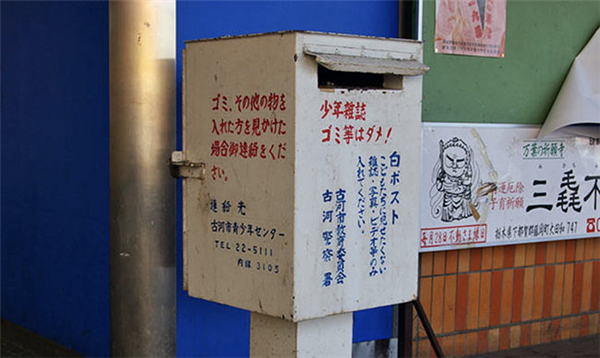 ゴミ、その他の物を
入れた方を見かけた
場合御連絡をくだ
さい。
連絡先
古河市青少年センター
TEL 22-5111
内線 3105
少年雑誌
ゴミ等はダメ!
白ポスト
こどもたちに見せたくない
雑誌・写真・ビデオ等のみ
入れてください。
古河市教育委員会
古河警察署
万葉の祈願寺
三毳不
厄除
祈願
毎月28日不動さま縁日
栃木県下都賀郡藤岡町大田和747